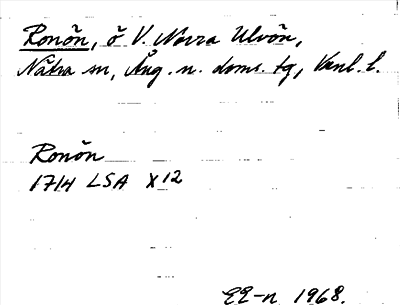 Ronön, ö V. Norra Ulvön,
Nätra sn, Ång. n. doms. tg, Vnl. l.
Ronön
1714 LSA X 12
EE-n 1968.